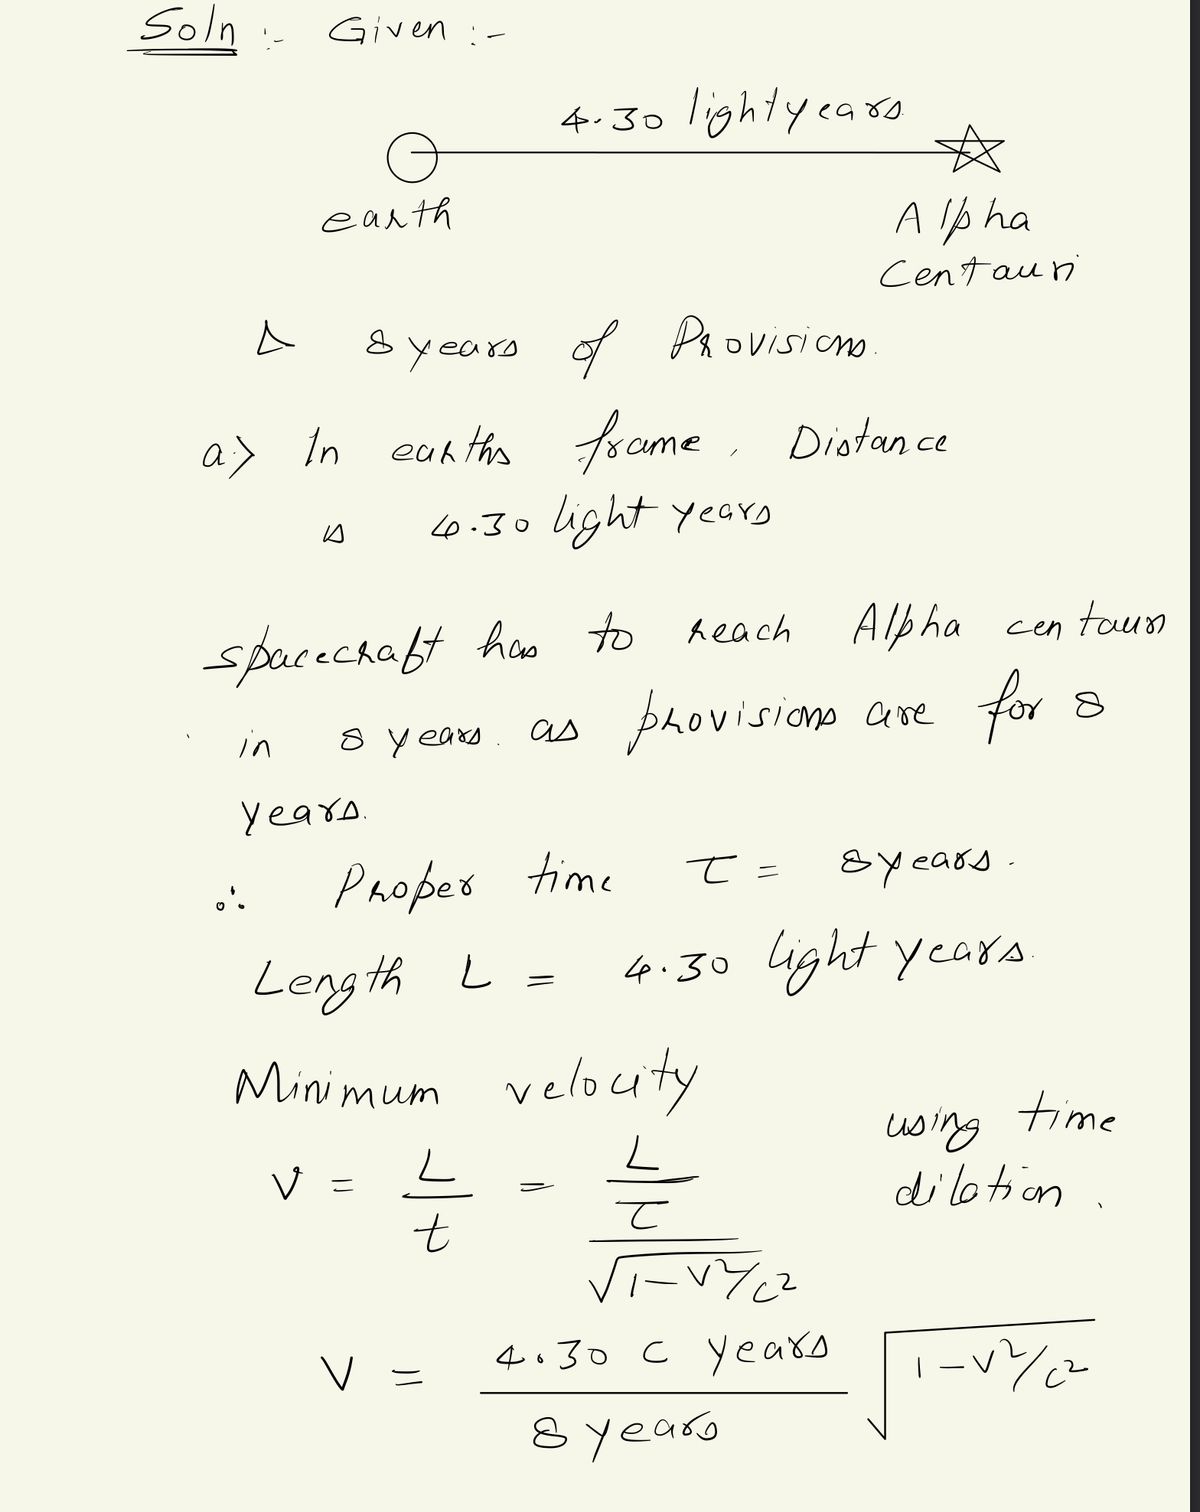 Soln :- Given :-
4.30 lightyears
earth
Alpha
Centauri
8 years of Provisions.
a) In earths frame, Distance
is 4.30 light years
spacecraft has to reach Alpha centauri
in 8 years. as provisions are for 8
years.
∴ Proper time τ = 8years.
Length L = 4.30 light years.
Minimum velocity
using time
dilation.
V = L/t = L/(τ/√(1-V²/c²))
V = (4.30 c years/8 years) √(1-V²/c²)